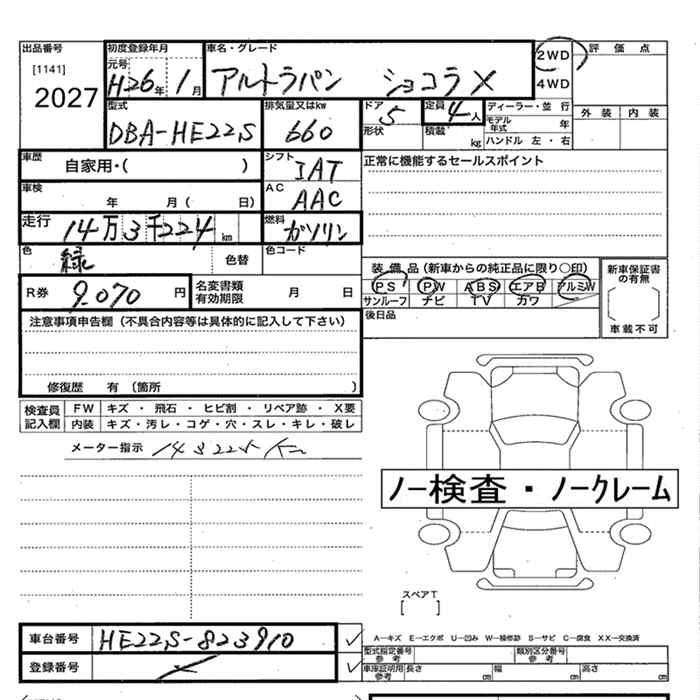 出品番号
[1141]
2027
初度登録年月
元号
H26年 1月
車名・グレード
アルトラパン ショコラX
2WD
4WD
評価点
外装 内装
型式
DBA-HE22S
排気量又はkw
660
ドア
5
形状
定員
4人
積載 kg
ディーラー・並行
モデル年式 年
ハンドル 左・右
車歴
自家用・( )
シフト
IAT
正常に機能するセールスポイント
車検
年 月( 日)
AC
AAC
走行
14万3千224km
燃料
ガソリン
色
緑
色替
色コード
装備品(新車からの純正品に限り○印)
PS PW ABS エアB アルミW
サンルーフ ナビ TV カワ
新車保証書の有無
車載不可
R券
9.070円
名変書類有効期限
月 日
後日品
注意事項申告欄(不具合内容等は具体的に記入して下さい)
修復歴 有(箇所 )
検査員記入欄
FW キズ・飛石・ヒビ割・リペア跡・X要
内装 キズ・汚レ・コゲ・穴・スレ・キレ・破レ
メーター指示
ノー検査・ノークレーム
スペアT
[ ]
車台番号
HE22S-823910
登録番号
A−キズ E−エクボ U−凹み W−補修跡 S−サビ C−腐食 XX−交換済
型式指定番号参考
類別区分番号参考
車庫証明用参考
長さ cm
幅 cm
高さ cm